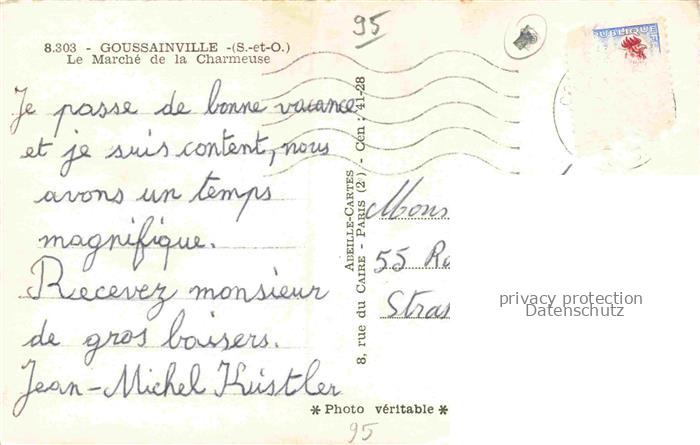 95
8.303 - GOUSSAINVILLE -(S.-et-O.)
Le Marché de la Charmeuse
Je passe de bonne vacance
et je suis content, nous
avons un temps
magnifique.
Recevez monsieur
de gros baisers.
Jean-Michel Küstler
ABEILLE-CARTES
8, rue du CAIRE - PARIS (2e) - Cen : 41-28
PUBLIQUE
Mons
55 Ro
Stras
privacy protection
Datenschutz
* Photo véritable *
95